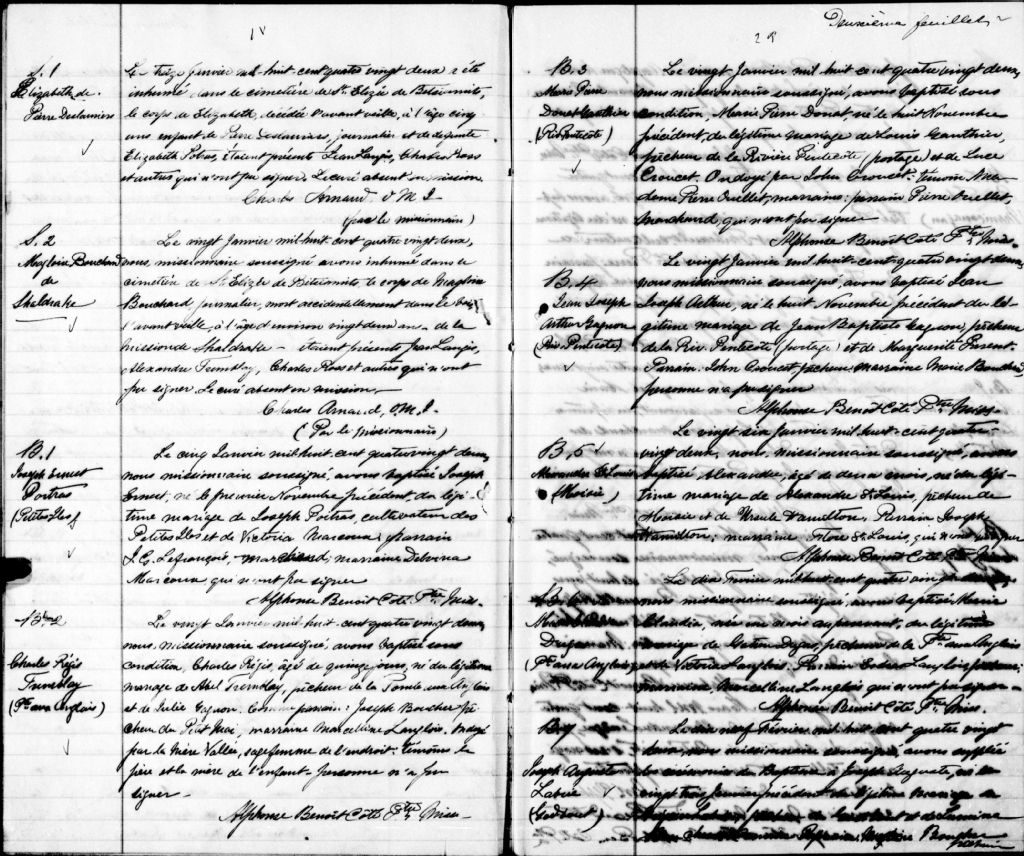 1v
S. 1
Elizabeth de
Pierre Deslauriers
Le treize Janvier mil-huit-cent quatre vingt deux a été
inhumé dans le cimetière de St.
le corps de Elizabeth, décédée l'avant veille, à l'âge cinq
ans enfant de Pierre Deslauriers, journalier et de défunte
Elizabeth étaient présents Jean Langis, Charles Ross
et autres qui n'ont pu signer. Le curé absent en mission.
Charles Arnaud, O.M.I.
(par le missionnaire)
S. 2
Bouchard
de
Shaldrake
Le vingt Janvier mil huit cent quatre vingt deux,
nous, missionnaire soussigné avons inhumé dans le
cimetière de St. le corps de
Bouchard journalier, mort accidentellement dans le bois
l'avant veille, à l'âge d'environ vingt deux ans - de la
mission de Shaldrake - étaient présents Jean Langis,
Alexandre Tremblay, Charles Ross et autres qui n'ont
pu signer. Le curé absent en mission.
Charles Arnaud, O.M.I.
(Par le missionnaire)
B. 1
Joseph Ernest
Poitras
(Petites Iles)
Le cinq Janvier mil huit cent quatre vingt deux,
nous missionnaire soussigné, avons baptisé Joseph
Ernest, né le premier Novembre précédent, du légi-
time mariage de Joseph Poitras, cultivateur des
Petites Iles et de Victoria Marcoux; parrain
J. C. Lefrançois, marchand; marraine
Marcoux qui n'ont pu signer
Alphonse Benoit Coté Ptre Miss.
Charles Régis
Tremblay
(Pte aux Anglais)
Le vingt Janvier mil huit cent quatre vingt deux
nous, missionnaire soussigné, avons baptisé sous
condition, Charles Régis, âgé de quinze jours, né du légitime
mariage de Abel Tremblay, pêcheur de la Pointe aux Anglais
et de Julie Gagnon. parrain: Joseph Boucher pê-
cheur du Petit Mai, marraine Marcelline Langlois. Ondoyé
par la Mère Vallée, sage femme de l'endroit. Témoins le
père et la mère de l'enfant. personne n'a pu
signer -
Alphonse Benoit Coté Ptre Miss.
Deuxième feuillet
2 R
B. 3
Marie Pierre
Donat Gauthier
(Riv. Pentecôte)
Le vingt Janvier mil huit cent quatre vingt deux,
nous missionnaire soussigné, avons baptisé sous
condition, Marie Pierre Donat, né le huit Novembre
précédent, du légitime mariage de Louis Gauthier,
pêcheur de la Rivière Pentecôte (portage) et de Luce
Croucet. Ondoyé par John Croucet. Témoin Ma-
dame Pierre Ouellet, marraine: parrain Pierre Ouellet,
marchand, qui n'ont pu signer
Alphonse Benoit Coté Ptre Miss.
B. 4
Jean Joseph
Arthur Gagnon
(Riv. Pentecôte)
Le vingt Janvier mil huit-cent-quatre vingt deux,
nous missionnaire soussigné, avons baptisé Jean
Joseph Arthur né le huit Novembre précédent du lé-
gitime mariage de Jean Baptiste Gagnon, pêcheur
de la Riv. Pentecôte (portage) et de Marguerite Parent.
Parrain John Croucet, pêcheur, marraine Marie Bouchard
personne n'a pu signer
Alphonse Benoit Coté Ptre Miss.
B. 5
Alexandre St Louis
(Moisie)
Le vingt six Janvier mil huit-cent quatre-
vingt deux, nous, missionnaire soussigné, avons
baptisé Alexandre, âgé de deux mois, né du légi-
time mariage de Alexandre St Louis, pêcheur de
Moisie et de Ursule Hamilton. Parrain Joseph
Hamilton, marraine St Louis, qui n'ont pu signer
Alphonse Benoit Coté Ptre Miss.
(Pte aux Anglais)
Le dix Février mil huit cent quatre vingt deux
nous missionnaire soussigné, avons baptisé Marie
née un mois auparavant, du légitime
mariage de pêcheur de la Pte aux Anglais
et de Victoria Langlois. Parrain Langlois pêcheur,
marraine, Marcelline Langlois qui n'ont pu signer.
Alphonse Benoit Coté Ptre Miss.
Joseph Auguste
Labrie
(Godbout)
Le dix neuf Février mil huit cent quatre vingt
deux, nous missionnaire soussigné, avons suppléé
les cérémonies du Baptême à Joseph Auguste, né le
vingt trois Janvier précédent du légitime mariage de
pêcheur de Godbout et de
pêcheur